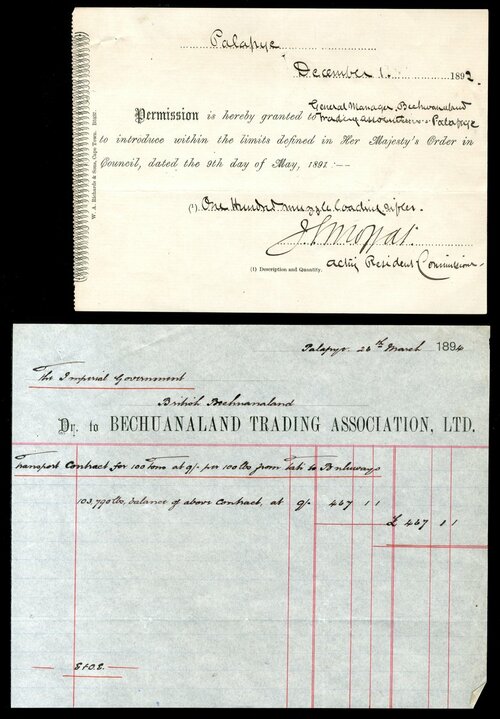 Palapye
December 1. 1892
Permission is hereby granted to General Manager, Bechuanaland
Trading Association Palapye
to introduce within the limits defined in Her Majesty's Order in
Council, dated the 9th day of May, 1891:—
(1) One Hundred muzzle loading rifles.
J S Moffat
acting Resident Commissioner
(1) Description and Quantity.
W. A. Richards & Sons, Cape Town.
Palapye. 26th March 1894
The Imperial Government
British Bechuanaland
Dr. to BECHUANALAND TRADING ASSOCIATION, LTD.
Transport Contract for 100 Tons at 9/- per 100 lbs from Tati to Buluwayo
103,790 lbs, balance of above Contract, at 9/- 467 1 1
£ 467 1 1
E.&O.E.